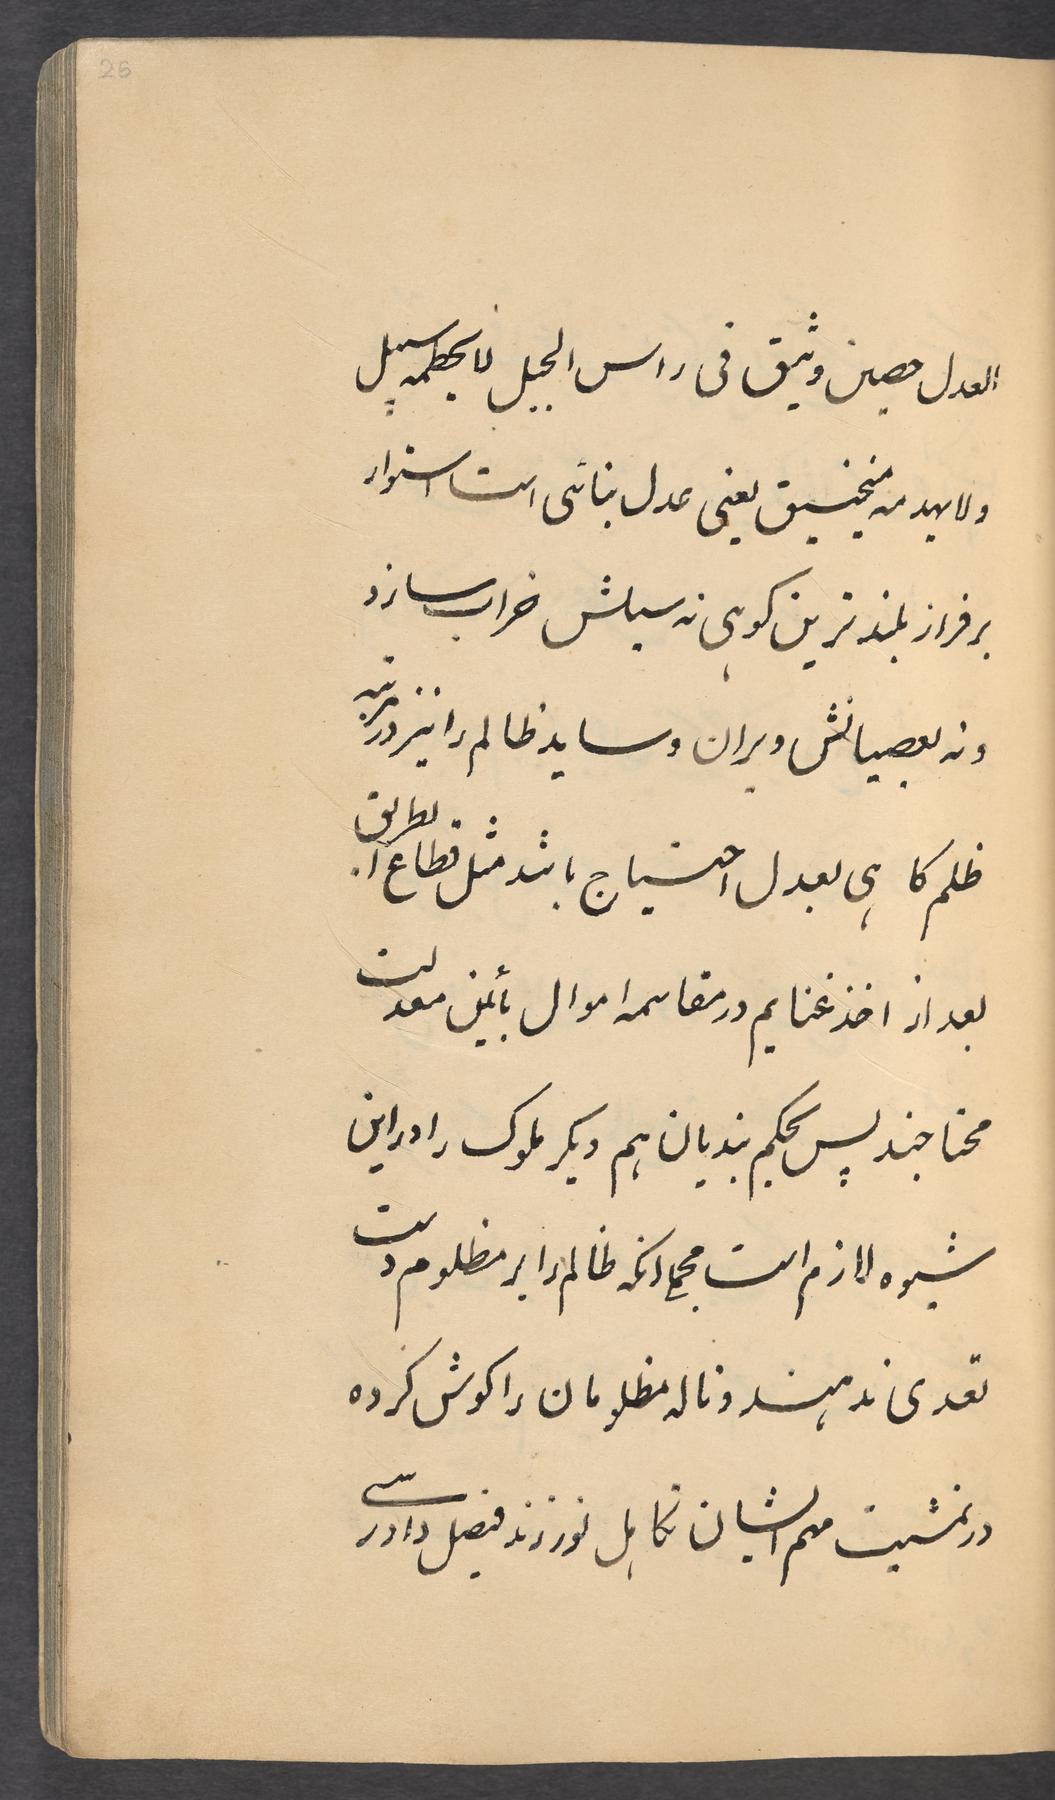 25
العدل حصین وثیق فی راس الجبل لا یحطمه سیل
ولا یهدمه منجنیق یعنی عدل بنائی است استوار
بر فراز بلند ترین کوهی نه سیلش خراب سازد
ونه بعصیانش ویران وساید ظالم را نیز در مرتبه
ظلم کاهی بعدل احتیاج باشد مثل قطاع الطریق
بعد از اخذ غنایم در مقاسمه اموال بآئین معدلت
محتاجند پس بحکم بندیان هم دیکر ملوک را در این
شیوه لازم است ظالم را بر مظلوم دست
تعدی ندهند وناله مظلومان را کوش کرده
در تمشیت مهم ایشان تکاهل نورزند فیصل دادرسی